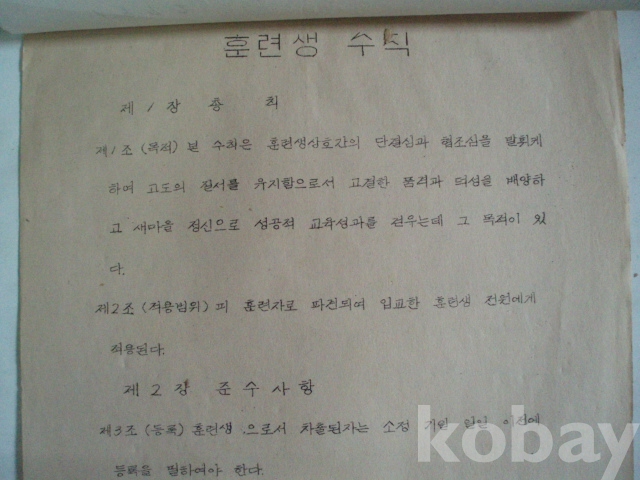 훈련생 수칙
제 1 장 총 칙
제1조 (목적) 본 수칙은 훈련생상호간의 단결심과 협조심을 발휘케
하며 고도의 질서를 유지함으로서 고결한 품격과 덕성을 배양하
고 새마을 정신으로 성공적 교육성과를 거두는데 그 목적이 있
다.
제2조 (적용범위) 피 훈련자로 파견되여 입교한 훈련생 전원에게
적용된다.
제 2 장 준 수 사 항
제3조 (등록) 훈련생 으로서 차출된자는 소정 기일 이전에
등록을 필하여야 한다.
kobay